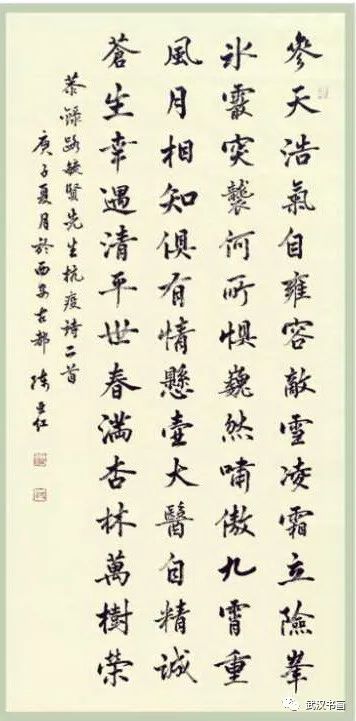 參天浩氣自雍容敵雪凌霜立險峯
氷霰突襲何所懼巍然嘯傲九霄重
風月相知俱有情懸壺大醫自精誠
蒼生幸遇清平世春滿杏林萬樹榮
恭錄路毓賢先生抗疫詩二首
庚子夏月於西安古都
武汉书画